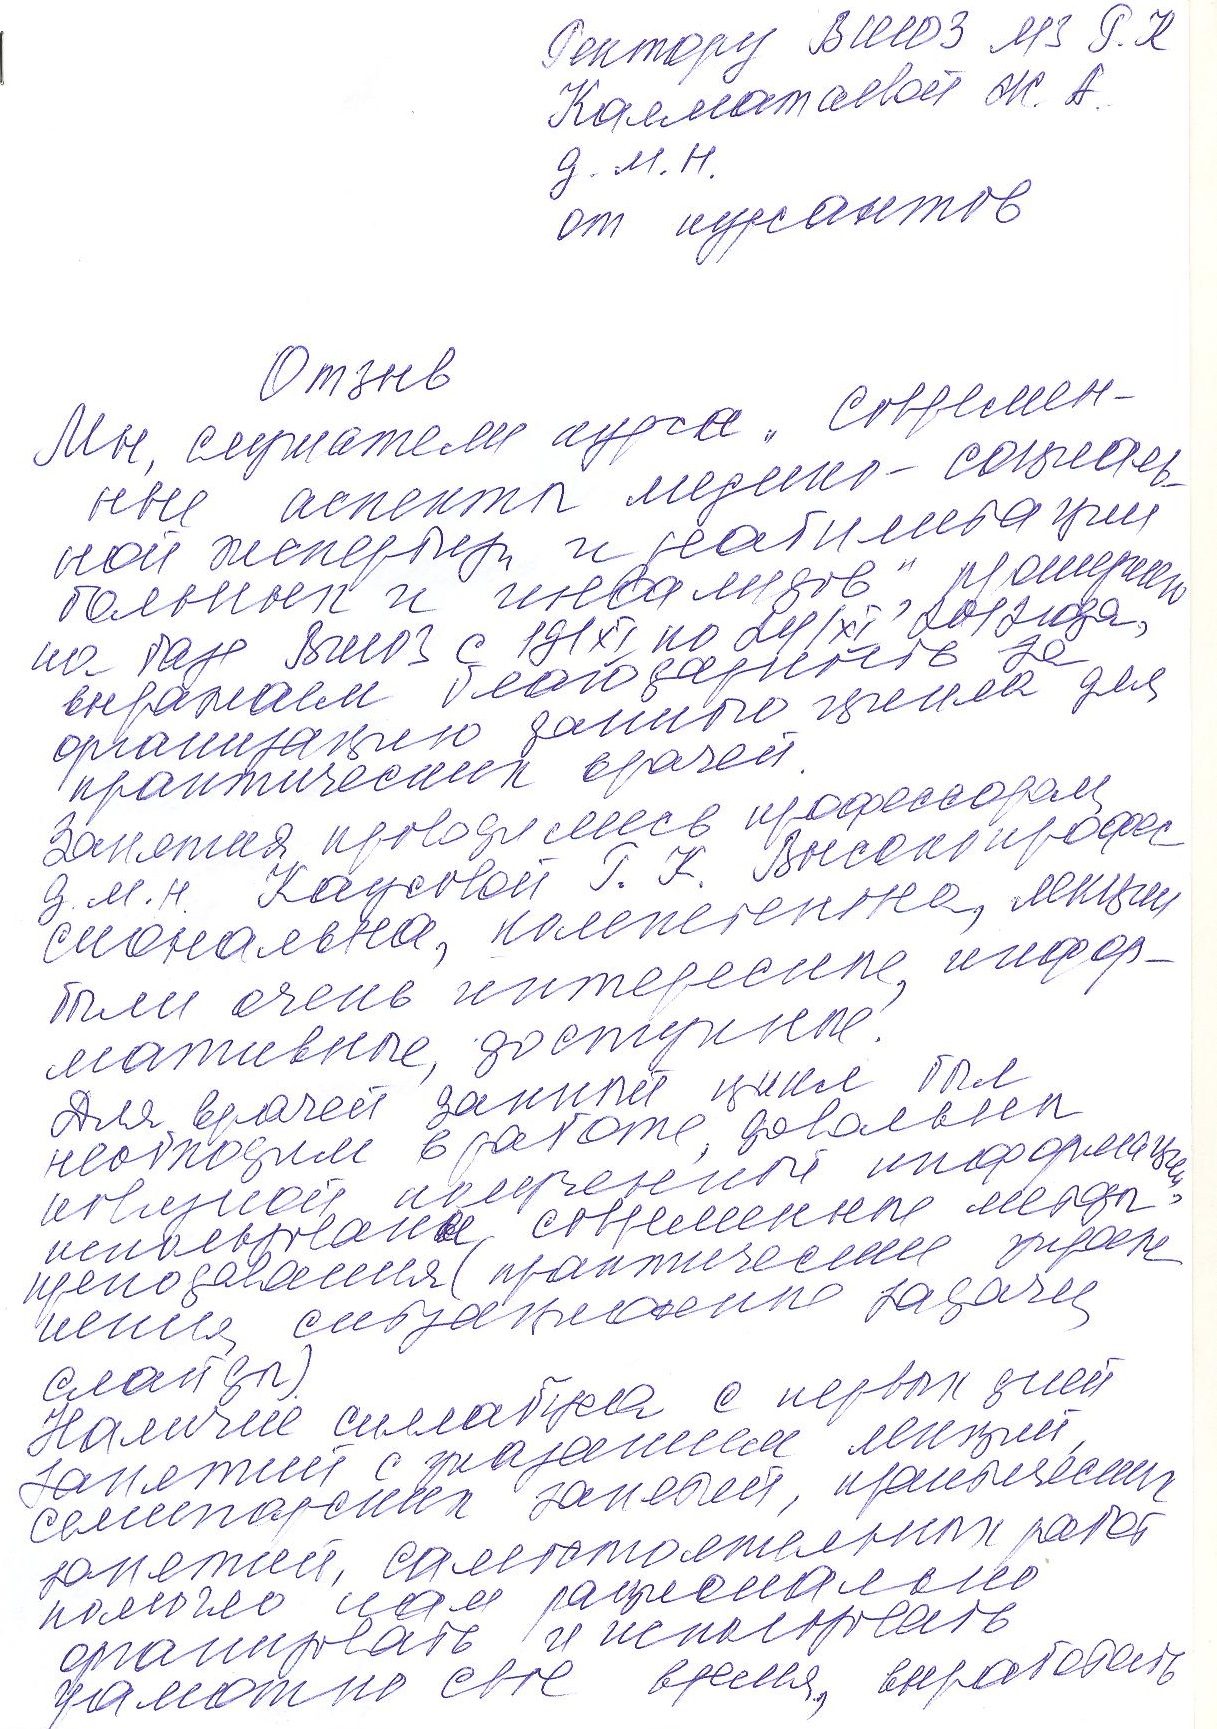 Ректору ВШОЗ МЗ Р.К
Калматаевой Ж. А.
д. м. н.
от курсантов
Отзыв
Мы, слушатели курса „Современ-
ные аспекты медико-социаль-
ной экспертизы и реабилитации
больных и инвалидов", прошедшего
на базе ВШОЗ с 19/XI по 24/XI 2012 года,
выражаем благодарность за
организацию данного цикла для
практических врачей.
Занятия проводились профессором
д.м.н. Каусовой Г. К. Высокопрофес
сиональна, компетентна, лекции
были очень интересные, инфор-
мативные, доступные.
Для врачей данный цикл был
необходим в работе, довольны
новизной полученной информации,
использованы современные методы
преподавания (практические упраж
нения, ситуационные задачи
слайды).
Наличие силлабуса с первых дней
занятий с указанием лекций,
семинарских занятий, практических
занятий, самостоятельных работ
помогло нам рационально
организовать и использовать
грамотно свое время, выработать